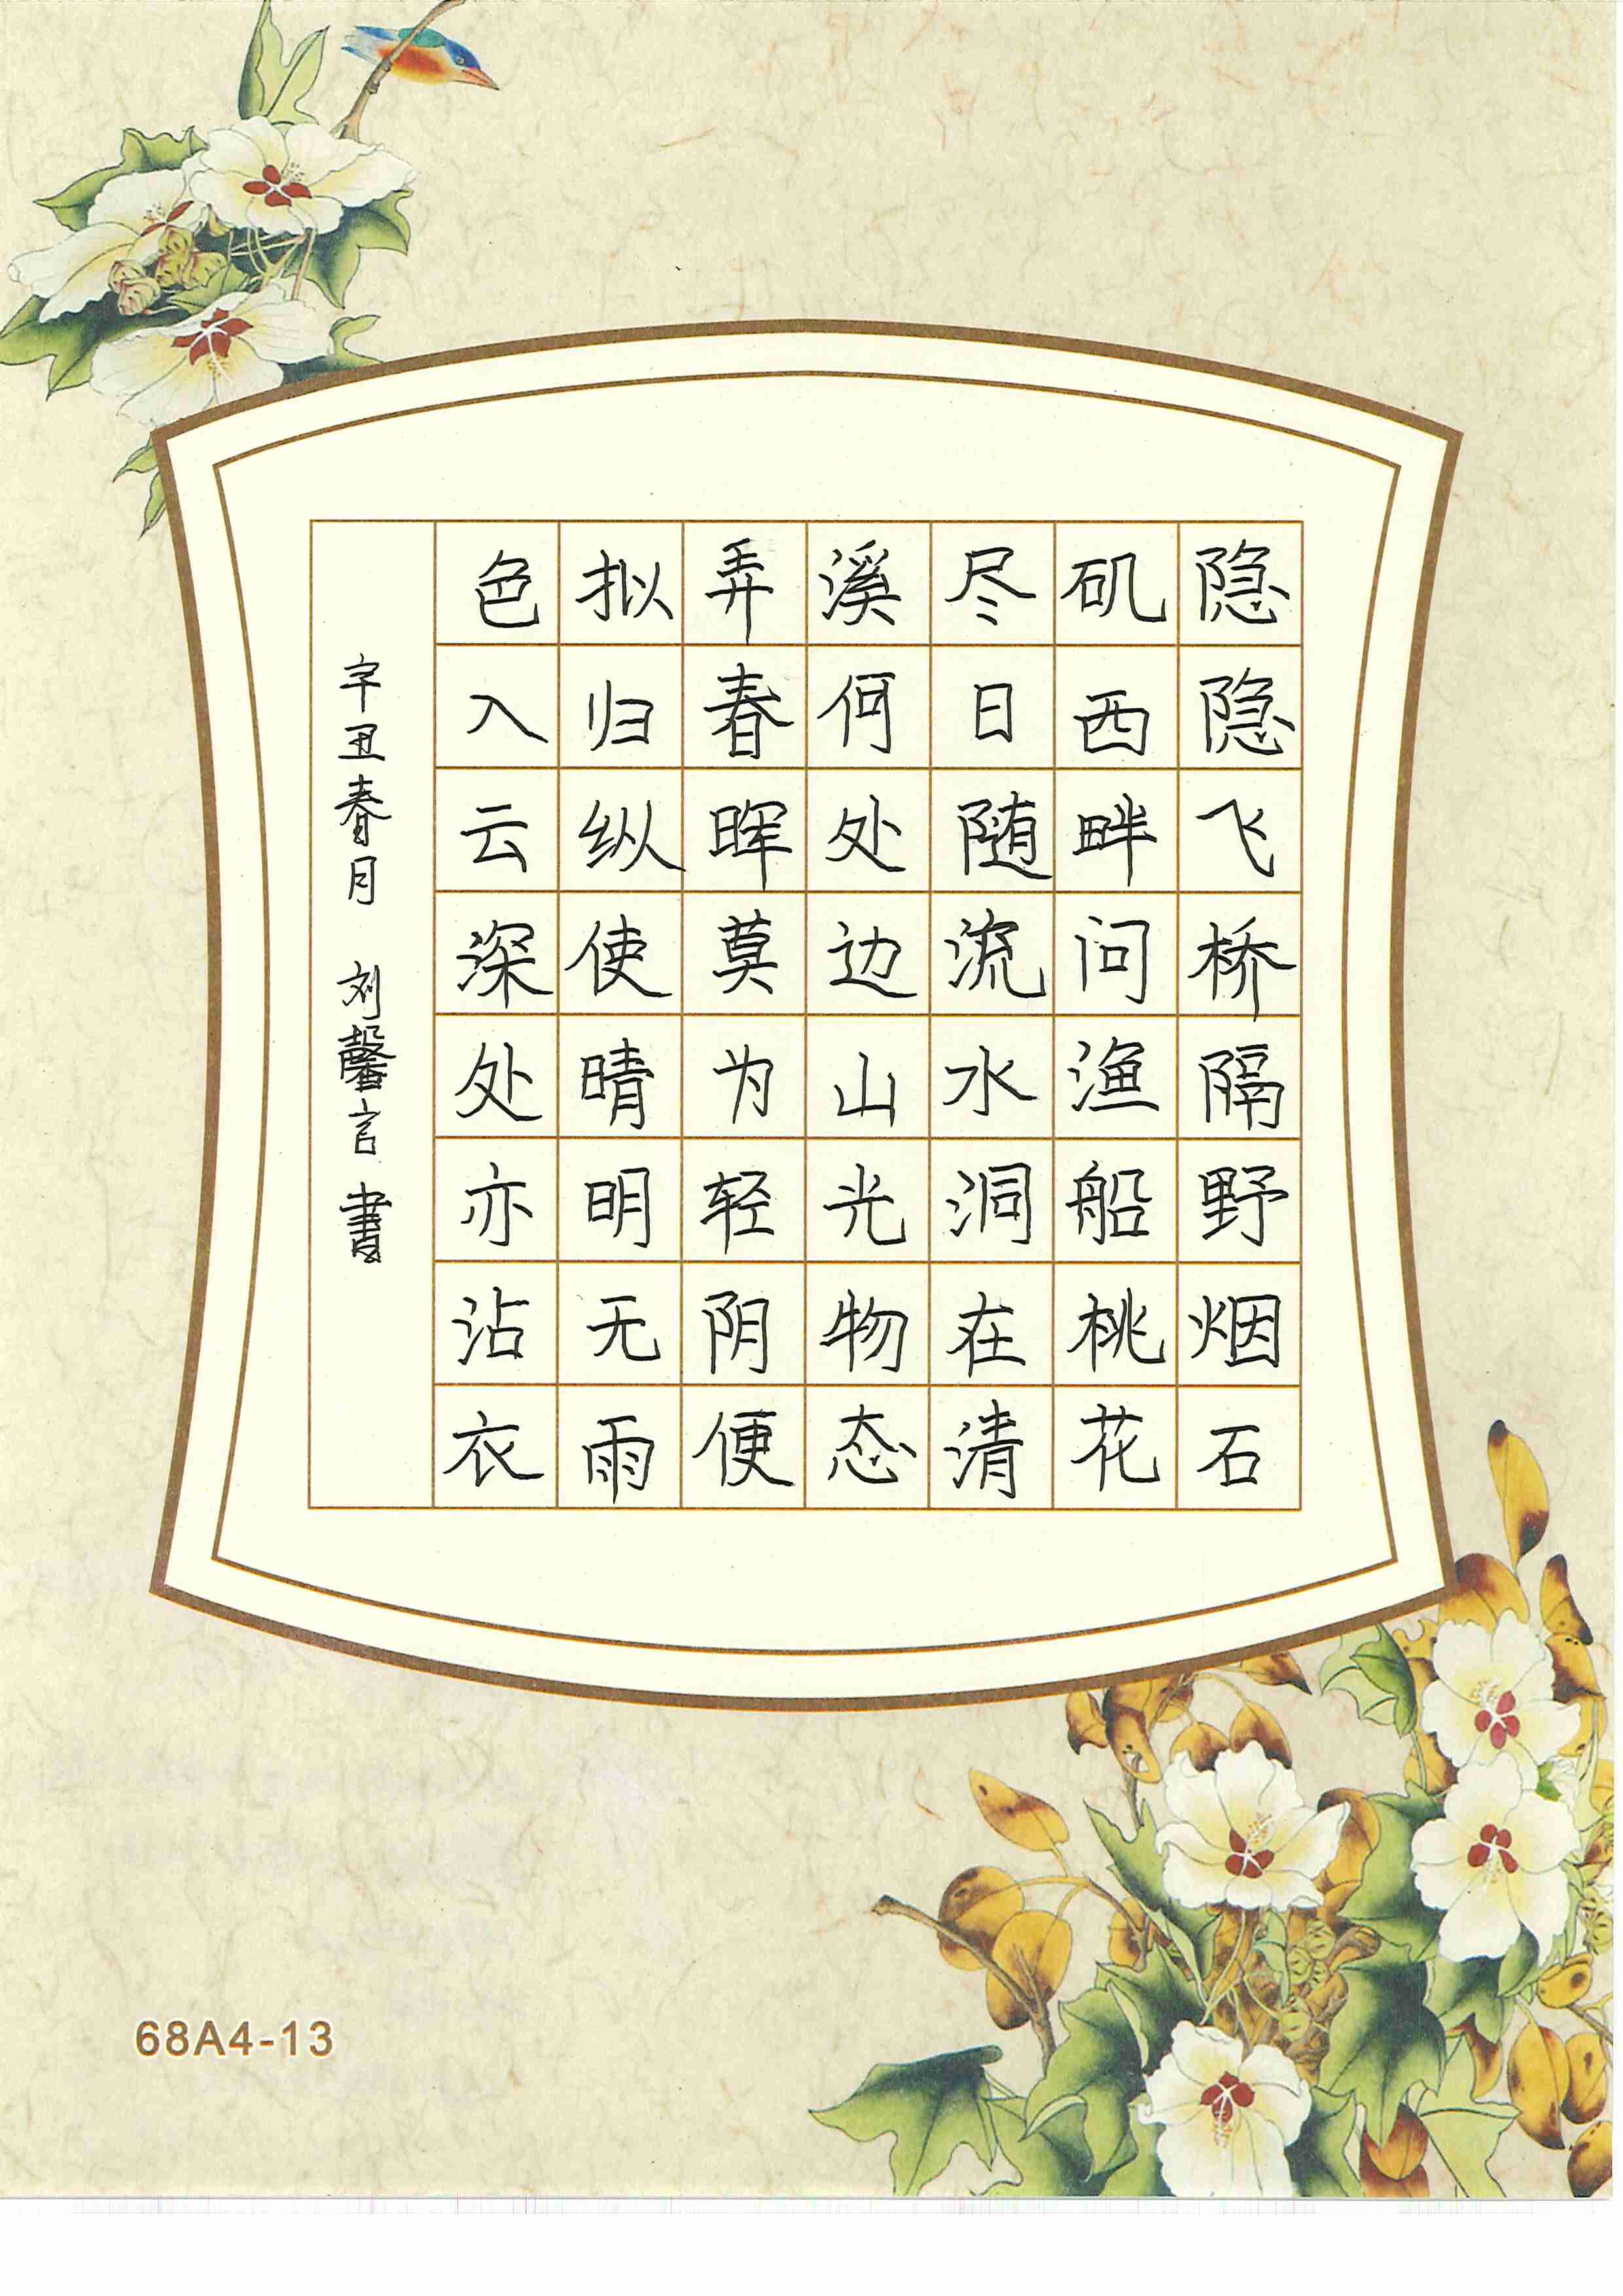 隐隐飞桥隔野烟石
矶西畔问渔船桃花
尽日随流水洞在清
溪何处边山光物态
弄春晖莫为轻阴便
拟归纵使晴明无雨
色入云深处亦沾衣
辛丑春月 刘馨言 書
68A4-13